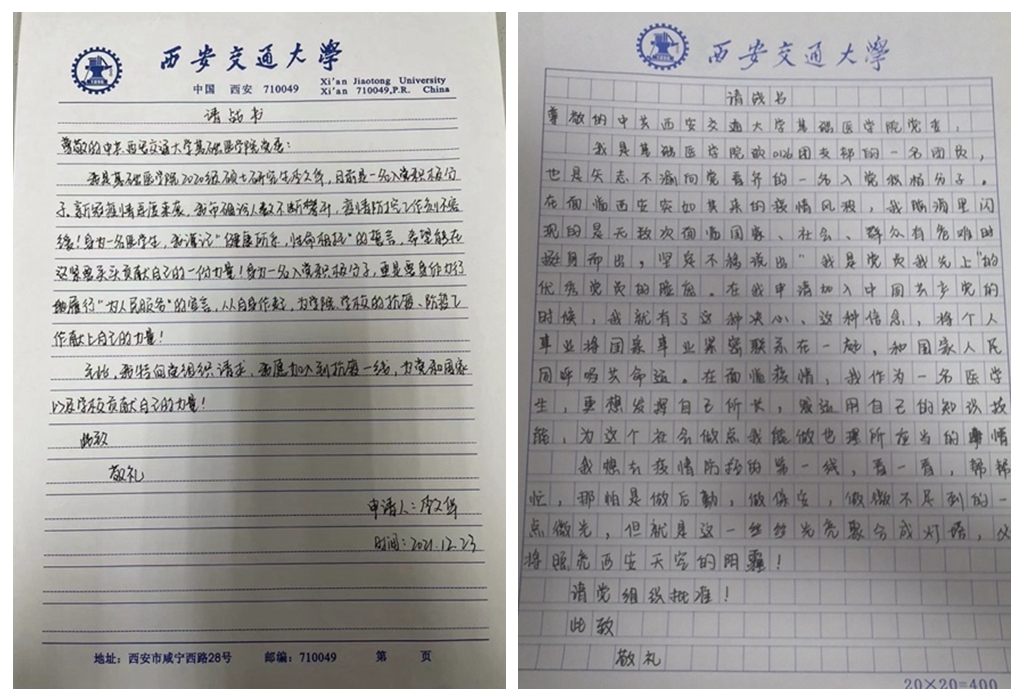 西安交通大学
中国 西安 710049 Xi'an Jiaotong University
Xi'an 710049,P.R. China
请战书
尊敬的中共西安交通大学基础医学院党委：
我是基础医学院2020级硕士研究生李文华，目前是一名入党积极分
子。新冠疫情再度来袭，我市确诊人数不断攀升，疫情防控工作刻不容
缓！身为一名医学生，我谨记“健康所系，性命相托”的誓言，希望能在
这紧要关头贡献自己的一份力量！身为一名入党积极分子，更是要身体力行
地履行“为人民服务”的宣言，从自身作起，为学院、学校的抗疫、防疫工
作献上自己的力量！
在此，我特向党组织请求，我愿加入到抗疫一线，为党和国家
以及学校贡献自己的力量！
此致
敬礼
申请人：李文华
时间：2021.12.23
地址：西安市咸宁西路28号 邮编：710049 第 页
西安交通大学
请战书
尊敬的中共西安交通大学基础医学院党委：
我是基础医学院0126团支部的一名团员，
也是矢志不渝向党看齐的一名入党积极分子。
在面临西安突如其来的疫情风波，我脑海里闪
现的是无数次面临国家、社会、群众有危难时
挺身而出，坚定不移说出“我是党员我先上”的
优秀党员的脸庞。在我申请加入中国共产党的
时候，我就有了这种决心、这种信息，将个人
事业将国家事业紧密联系在一起，和国家人民
同呼吸共命运。在面临疫情，我作为一名医学
生，更想发挥自己所长，运用自己的知识技
能，为这个社会做点我能做也理所应当的事情
我想去疫情防控的第一线，看一看，帮帮
忙，那怕是做后勤，做保安，做微不足到的一
点微光，但就是这一丝丝光亮聚合成灯塔，必
将照亮西安天空的阴霾！
请党组织批准！
此致
敬礼
20×20=400